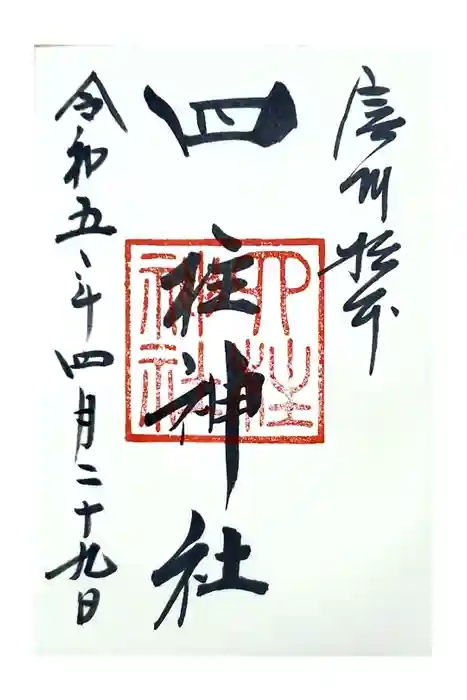 信州松本
四柱神社
四柱神社
令和五年四月二十九日